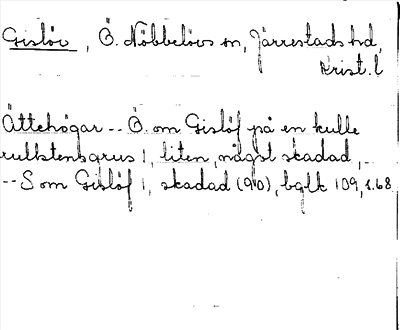 Gislöv, Ö. Nöbbelövs sn, Järrestads hd,
Krist. l
Ättehögar -- Ö. om Gislöf på en kulle
rullstensgrus 1, liten, något skadad, --
-- S om Gislöf 1, skadad (90), bglt 109, s. 68